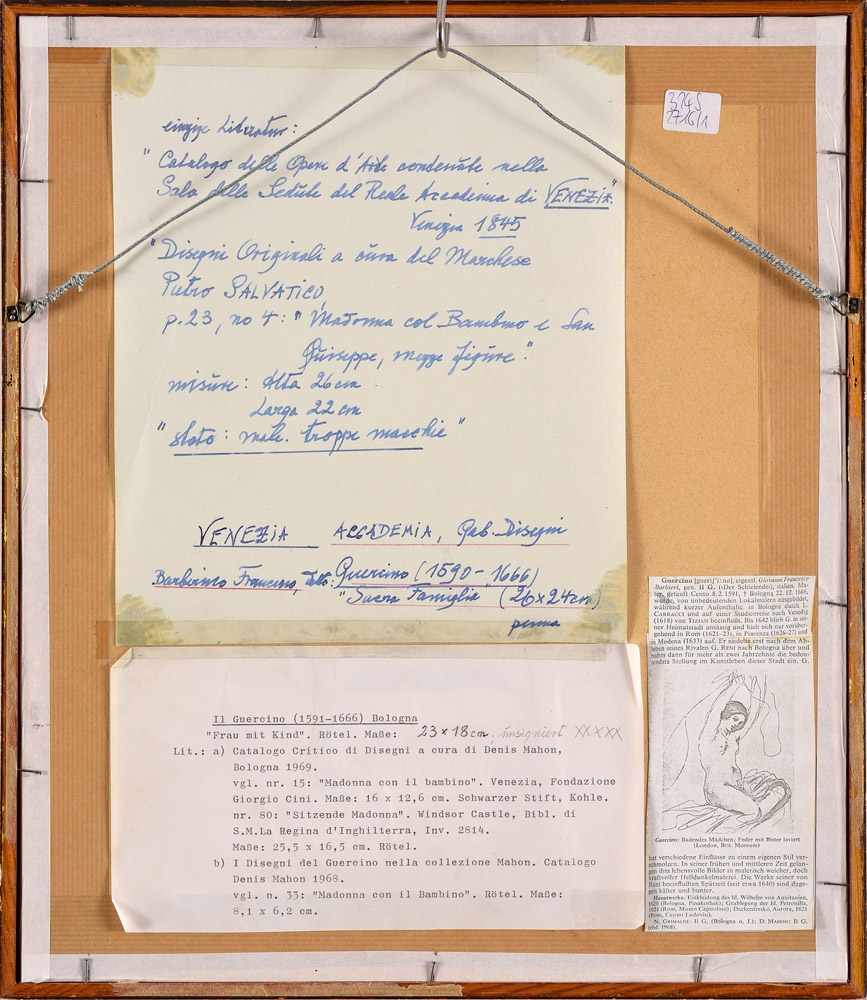 einzige Literatur:
"Catalogo delle Opere d'Arte contenute nella
Sala delle Sedute del Reale Accademia di VENEZIA".
Venezia 1845
"Disegni Originali a cura del Marchese
Pietro SALVATICO,
p. 23, no 4: "Madonna col Bambino e San
Guiseppe, mezze figure".
misure: Alta 26 cm
Larga 22 cm
"stato: male. troppe macchie"
VENEZIA ACCADEMIA, Gab. Disegni
Francesco, detto: Guercino (1590-1666)
"Sacra Famiglia" (26x24cm)
penna
Il Guercino (1591-1666) Bologna
"Frau mit Kind". Rötel. Maße: 23 x 18 cm, unsigniert XXXXX
Lit.: a) Catalogo Critico di Disegni a cura di Denis Mahon,
Bologna 1969.
vgl. nr. 15: "Madonna con il bambino". Venezia, Fondazione
Giorgio Cini. Maße: 16 x 12,6 cm. Schwarzer Stift, Kohle.
nr. 80: "Sitzende Madonna". Windsor Castle, Bibl. di
S.M.La Regina d'Inghilterra, Inv. 2814.
Maße: 25,5 x 16,5 cm. Rötel.
b) I Disegni del Guercino nella collezione Mahon. Catalogo
Denis Mahon 1968.
vgl. n. 33: "Madonna con il Bambino". Rötel. Maße:
8,1 x 6,2 cm.
Guercino [guert∫i:no], eigentl. Giovanni Francesco
Barbieri, gen. Il G. (›Der Schielende‹), italien. Ma-
ler, getauft Cento 8. 2. 1591, † Bologna 22. 12. 1666,
wurde, von unbedeutenden Lokalmalern ausgebildet,
während kurzer Aufenthalte in Bologna durch L.
CARRACCI und auf einer Studienreise nach Venedig
(1618) von TIZIAN beeinflußt. Bis 1642 blieb G. in sei-
ner Heimatstadt ansässig und hielt sich nur vorüber-
gehend in Rom (1621-23), in Piacenza (1626-27) und
in Modena (1633) auf. Er siedelte erst nach dem Ab-
leben seines Rivalen G. RENI nach Bologna über und
nahm dann für mehr als zwei Jahrzehnte die bedeu-
tendste Stellung im Kunstleben dieser Stadt ein. G.
Guercino: Badendes Mädchen; Feder mit Bister laviert
(London, Brit. Museum)
hat verschiedene Einflüsse zu einem eigenen Stil ver-
schmolzen. In seiner frühen und mittleren Zeit gelan-
gen ihm lebensvolle Bilder in malerisch weicher, doch
kraftvoller Helldunkelmalerei. Die Werke seiner von
Reni beeinflußten Spätzeit (seit etwa 1640) sind dage-
gen kälter und bunter.
Hauptwerke. Einkleidung des hl. Wilhelm von Aquitanien,
1620 (Bologna, Pinakothek); Grablegung der hl. Petronilla,
1621 (Rom, Museo Capitolino); Deckenfresko, Aurora, 1621
(Rom, Casino Ludovisi).
N. GRIMALDI: Il G. (Bologna o. J.); D. MAHON: Il G.
(ebd. 1968).